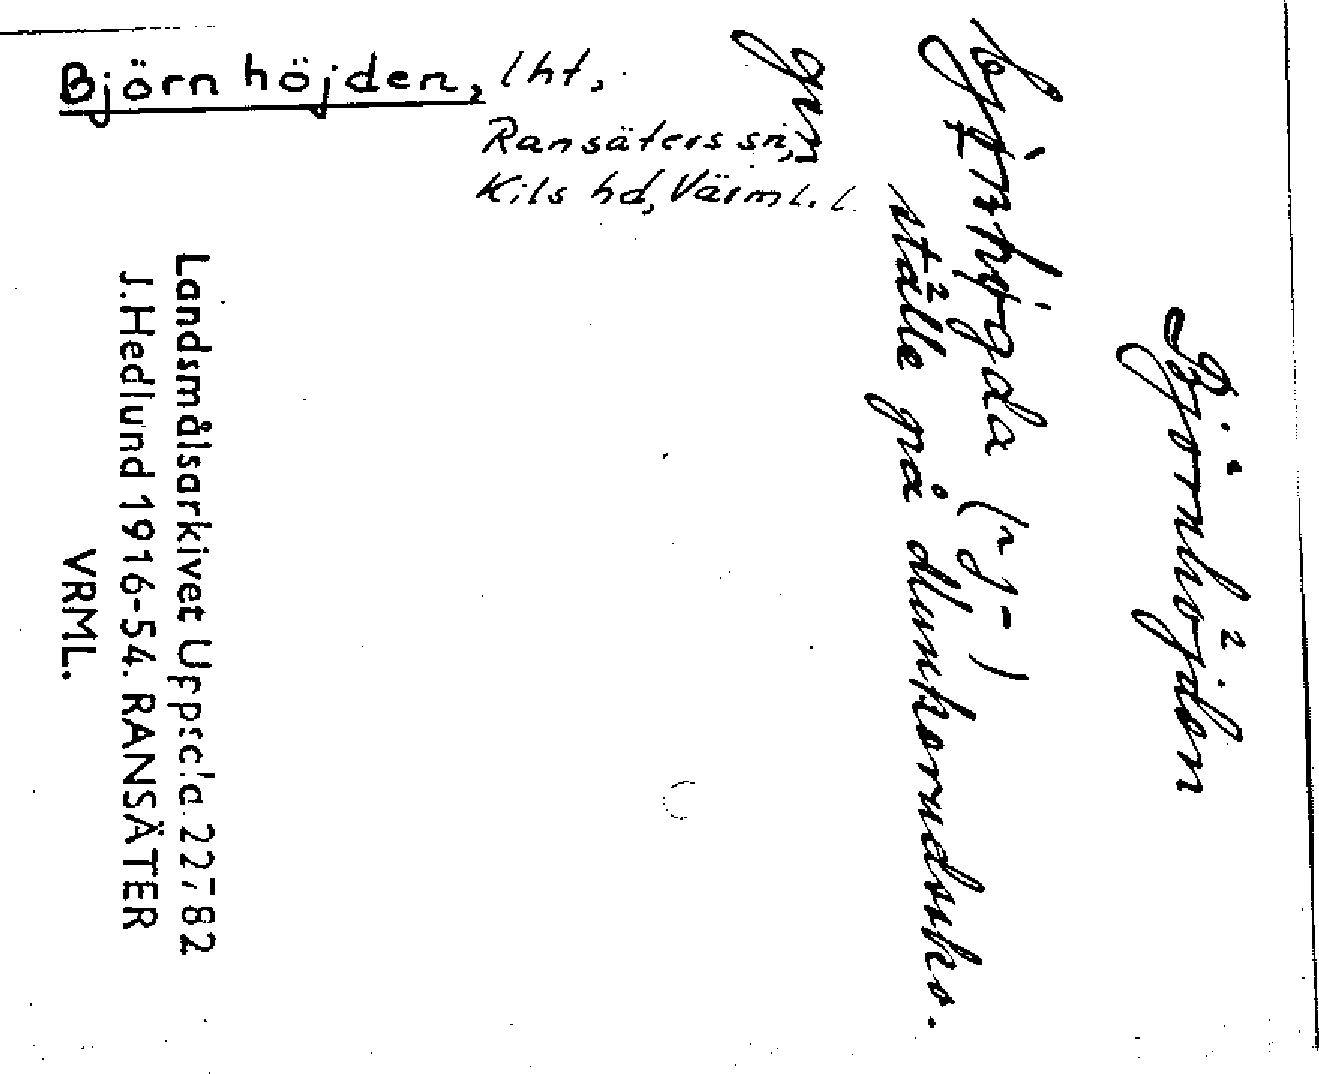 Björnhöjden, lht,
Ransäters sn,
Kils hd, Värml. l.
Björnhöjden
(nj-)
ställe på Munkerudssko.
gm
Landsmålsarkivet Uppsala 22782
J.Hedlund 1916-54. RANSÄTER
VRML.